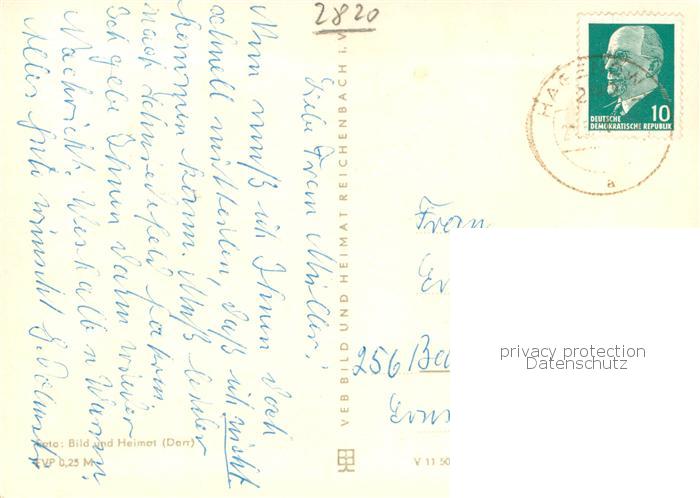 2820
Liebe Frau Müller,
Nun muß ich Ihnen doch
schnell mitteilen, daß ich nicht
kommen kann. Muß leider
nach Schmiedefeld fahren
Ich gebe Ihnen dann wieder
Nachricht. Weshalb u Warum.
Alles Gute wünscht
VEB BILD UND HEIMAT REICHENBACH i. V
Foto: Bild und Heimat (Darr)
EVP 0,25 M
V 11 50
10
DEUTSCHE
DEMOKRATISCHE REPUBLIK
HAG
a
Frau
256 Ba
privacy protection
Datenschutz